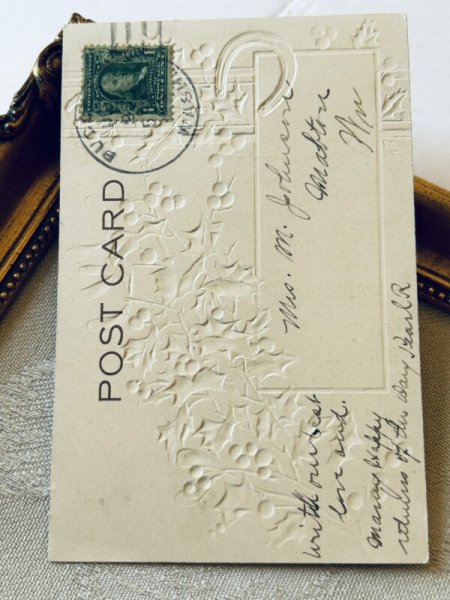 POST CARD
Mrs. M. Johnson
Wn
with our best
love and.
Many Happy
returns of the day Pearl R